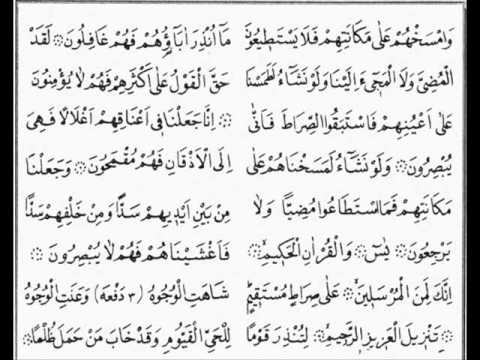 وَامْسَخْهُمْ عَلٰى مَكَانَتِهِمْ فَلَا يَسْتَطِيعُونَ
الْمُضِىَّ وَلَا الْمَجِىءَ اِلَيْنَا وَلَوْ نَشَاءُ لَطَمَسْنَا
عَلٰى اَعْيُنِهِمْ فَاسْتَبَقُوا الصِّرَاطَ فَاَنّٰى
يُبْصِرُونَ ۞ وَلَوْ نَشَاءُ لَمَسَخْنَاهُمْ عَلٰى
مَكَانَتِهِمْ فَمَا اسْتَطَاعُوا مُضِيًّا وَلَا
يَرْجِعُونَ ۞ يٰسٓ ۞ وَالْقُرْاٰنِ الْحَكِيمِ ۞
اِنَّكَ لَمِنَ الْمُرْسَلِينَ ۞ عَلٰى صِرَاطٍ مُسْتَقِيمٍ
۞ تَنْزِيلَ الْعَزِيزِ الرَّحِيمِ ۞ لِتُنْذِرَ قَوْمًا
مَٓا اُنْذِرَ اٰبَٓاؤُهُمْ فَهُمْ غَافِلُونَ ۞ لَقَدْ
حَقَّ الْقَوْلُ عَلٰى اَكْثَرِهِمْ فَهُمْ لَا يُؤْمِنُونَ
۞ اِنَّا جَعَلْنَا فِى اَعْنَاقِهِمْ اَغْلَالًا فَهِىَ
اِلَى الْاَذْقَانِ فَهُمْ مُقْمَحُونَ ۞ وَجَعَلْنَا
مِنْ بَيْنِ اَيْدِيهِمْ سَدًّا وَمِنْ خَلْفِهِمْ سَدًّا
فَاَغْشَيْنَاهُمْ فَهُمْ لَا يُبْصِرُونَ ۞
شَاهَتِ الْوُجُوهُ (٣ دَفْعَه) وَعَنَتِ الْوُجُوهُ
لِلْحَىِّ الْقَيُّومِ وَقَدْ خَابَ مَنْ حَمَلَ ظُلْمًا ۞